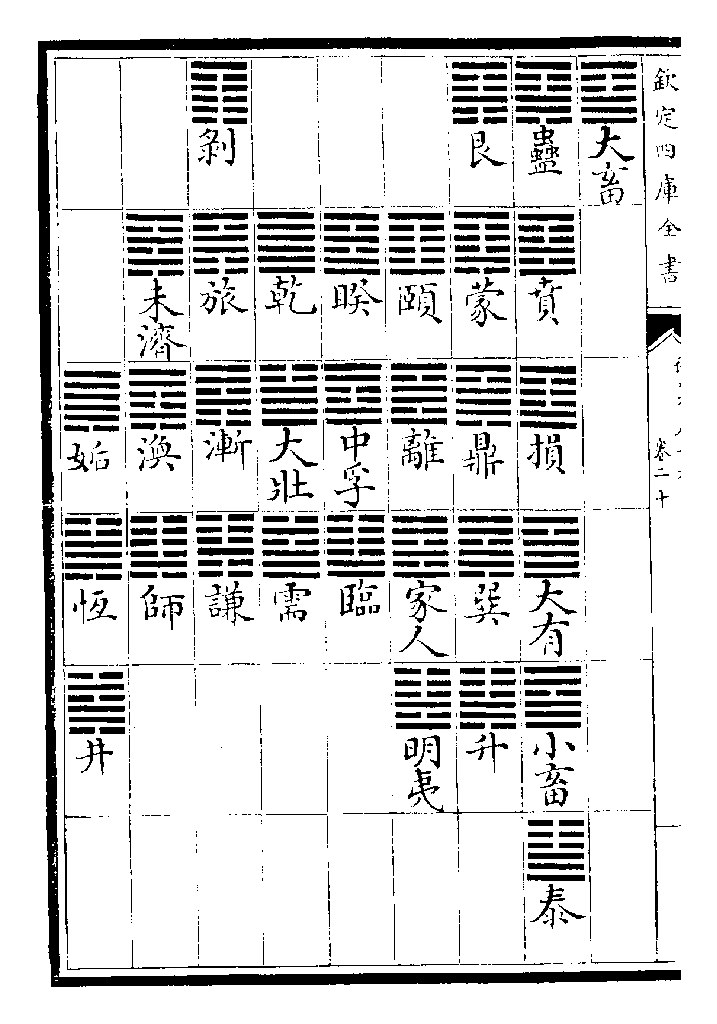 欽定四庫全書
卷二十
大畜
蠱 賁 損 大有 小畜 泰
艮 蒙 鼎 巽 升
頤 離 家人 明夷
睽 中孚 臨
乾 大壯 需
剝 旅 漸 謙
未濟 渙 師
姤 恆 井